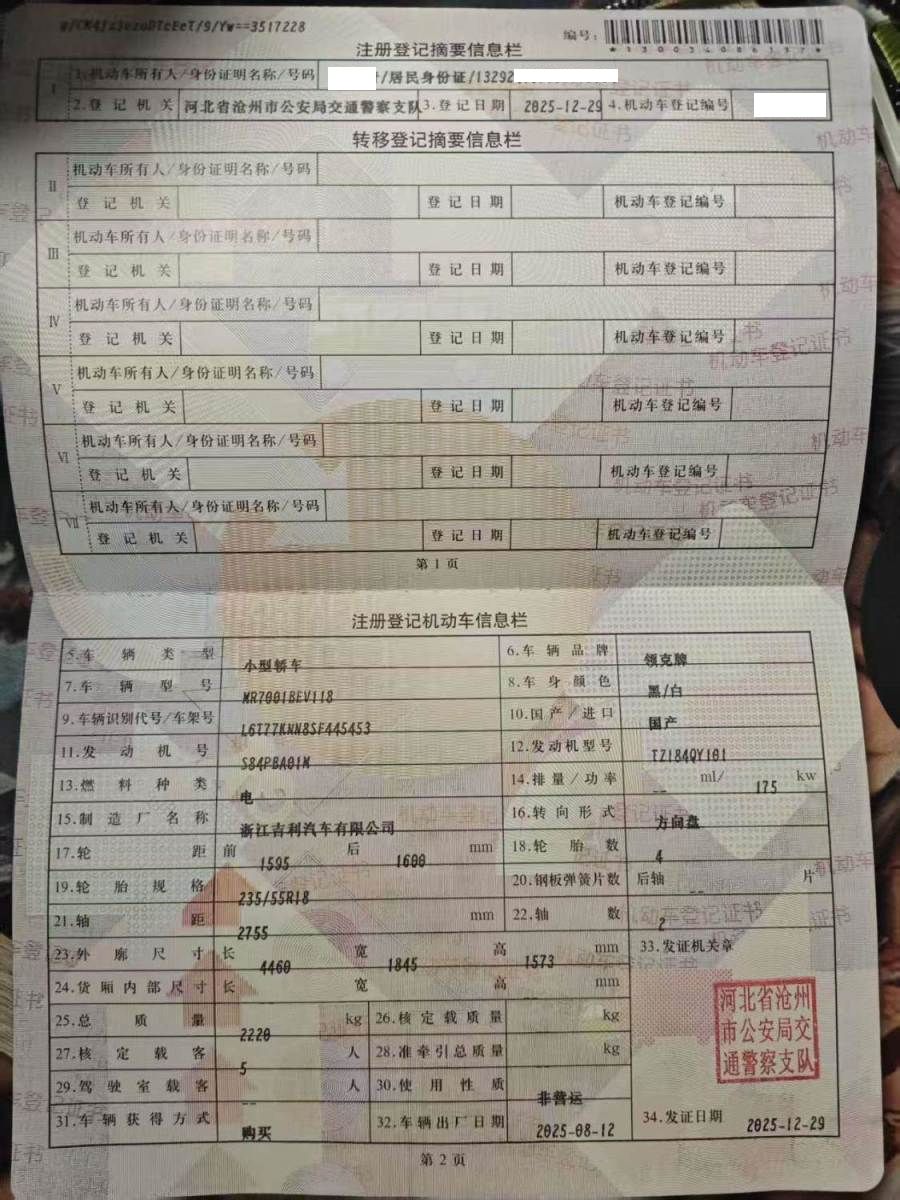 编号:
*130034086337*
注册登记摘要信息栏
I 1.机动车所有人/身份证明名称/号码 /居民身份证/13292
2.登记机关 河北省沧州市公安局交通警察支队 3.登记日期 2025-12-29 4.机动车登记编号
转移登记摘要信息栏
II 机动车所有人/身份证明名称/号码
登记机关 登记日期 机动车登记编号
III 机动车所有人/身份证明名称/号码
登记机关 登记日期 机动车登记编号
IV 机动车所有人/身份证明名称/号码
登记机关 登记日期 机动车登记编号
V 机动车所有人/身份证明名称/号码
登记机关 登记日期 机动车登记编号
VI 机动车所有人/身份证明名称/号码
登记机关 登记日期 机动车登记编号
VII 机动车所有人/身份证明名称/号码
登记机关 登记日期 机动车登记编号
第1页
注册登记机动车信息栏
5.车辆类型 小型轿车 6.车辆品牌 领克牌
7.车辆型号 MR7001BEV118 8.车身颜色 黑/白
9.车辆识别代号/车架号 L6T77KNN8SF445453 10.国产/进口 国产
11.发动机号 S84PBA01M 12.发动机型号 TZ184QY101
13.燃料种类 电 14.排量/功率 -- ml/ 175 kw
15.制造厂名称 浙江吉利汽车有限公司 16.转向形式 方向盘
17.轮距 前 1595 后 1600 mm 18.轮胎数 4
19.轮胎规格 235/55R18 20.钢板弹簧片数 后轴 -- 片
21.轴距 2755 mm 22.轴数 2
23.外廓尺寸 长 4460 宽 1845 高 1573 mm 33.发证机关章
24.货厢内部尺寸 长 宽 高 -- mm
25.总质量 2220 kg 26.核定载质量 kg
27.核定载客 5 人 28.准牵引总质量 kg
29.驾驶室载客 -- 人 30.使用性质 非营运
31.车辆获得方式 购买 32.车辆出厂日期 2025-08-12 34.发证日期 2025-12-29
河北省沧州
市公安局交
通警察支队
第2页